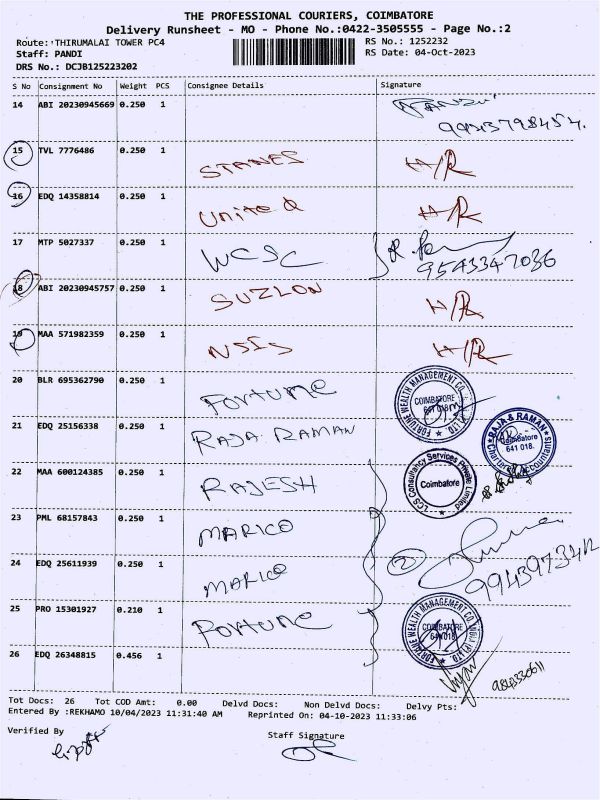 THE PROFESSIONAL COURIERS, COIMBATORE
Delivery Runsheet - MO - Phone No.:0422-3505555 - Page No.:2
Route: THIRUMALAI TOWER PC4 RS No.: 1252232
Staff: PANDI RS Date: 04-Oct-2023
DRS No.: DCJB125223202
S No Consignment No Weight PCS Consignee Details Signature
14 ABI 20230945669 0.250 1
15 TVL 7776486 0.250 1 STANES H/R
16 EDQ 14358814 0.250 1 United H/R
17 MTP 5027337 0.250 1 WCSC 9543347036
18 ABI 20230945757 0.250 1 SUZLON H/R
19 MAA 571982359 0.250 1 NSIS H/R
20 BLR 695362790 0.250 1 Fortune
FORTUNE WEALTH MANAGEMENT CO. COIMBATORE 641 018
21 EDQ 25156338 0.250 1 RAJA RAMAN
RAJA & RAMAN Coimbatore 641 018. Chartered Accountants
22 MAA 600124385 0.250 1 RAJESH
LCS Consultancy Services Private Limited Coimbatore
23 PML 68157843 0.250 1 MARICO
24 EDQ 25611939 0.250 1 MARICO 2
25 PRO 15301927 0.210 1 Fortune
FORTUNE WEALTH MANAGEMENT CO. COIMBATORE 641 018
26 EDQ 26348815 0.456 1
Tot Docs: 26 Tot COD Amt: 0.00 Delvd Docs: Non Delvd Docs: Delvy Pts:
Entered By :REKHAMO 10/04/2023 11:31:40 AM Reprinted On: 04-10-2023 11:33:06
Verified By Staff Signature